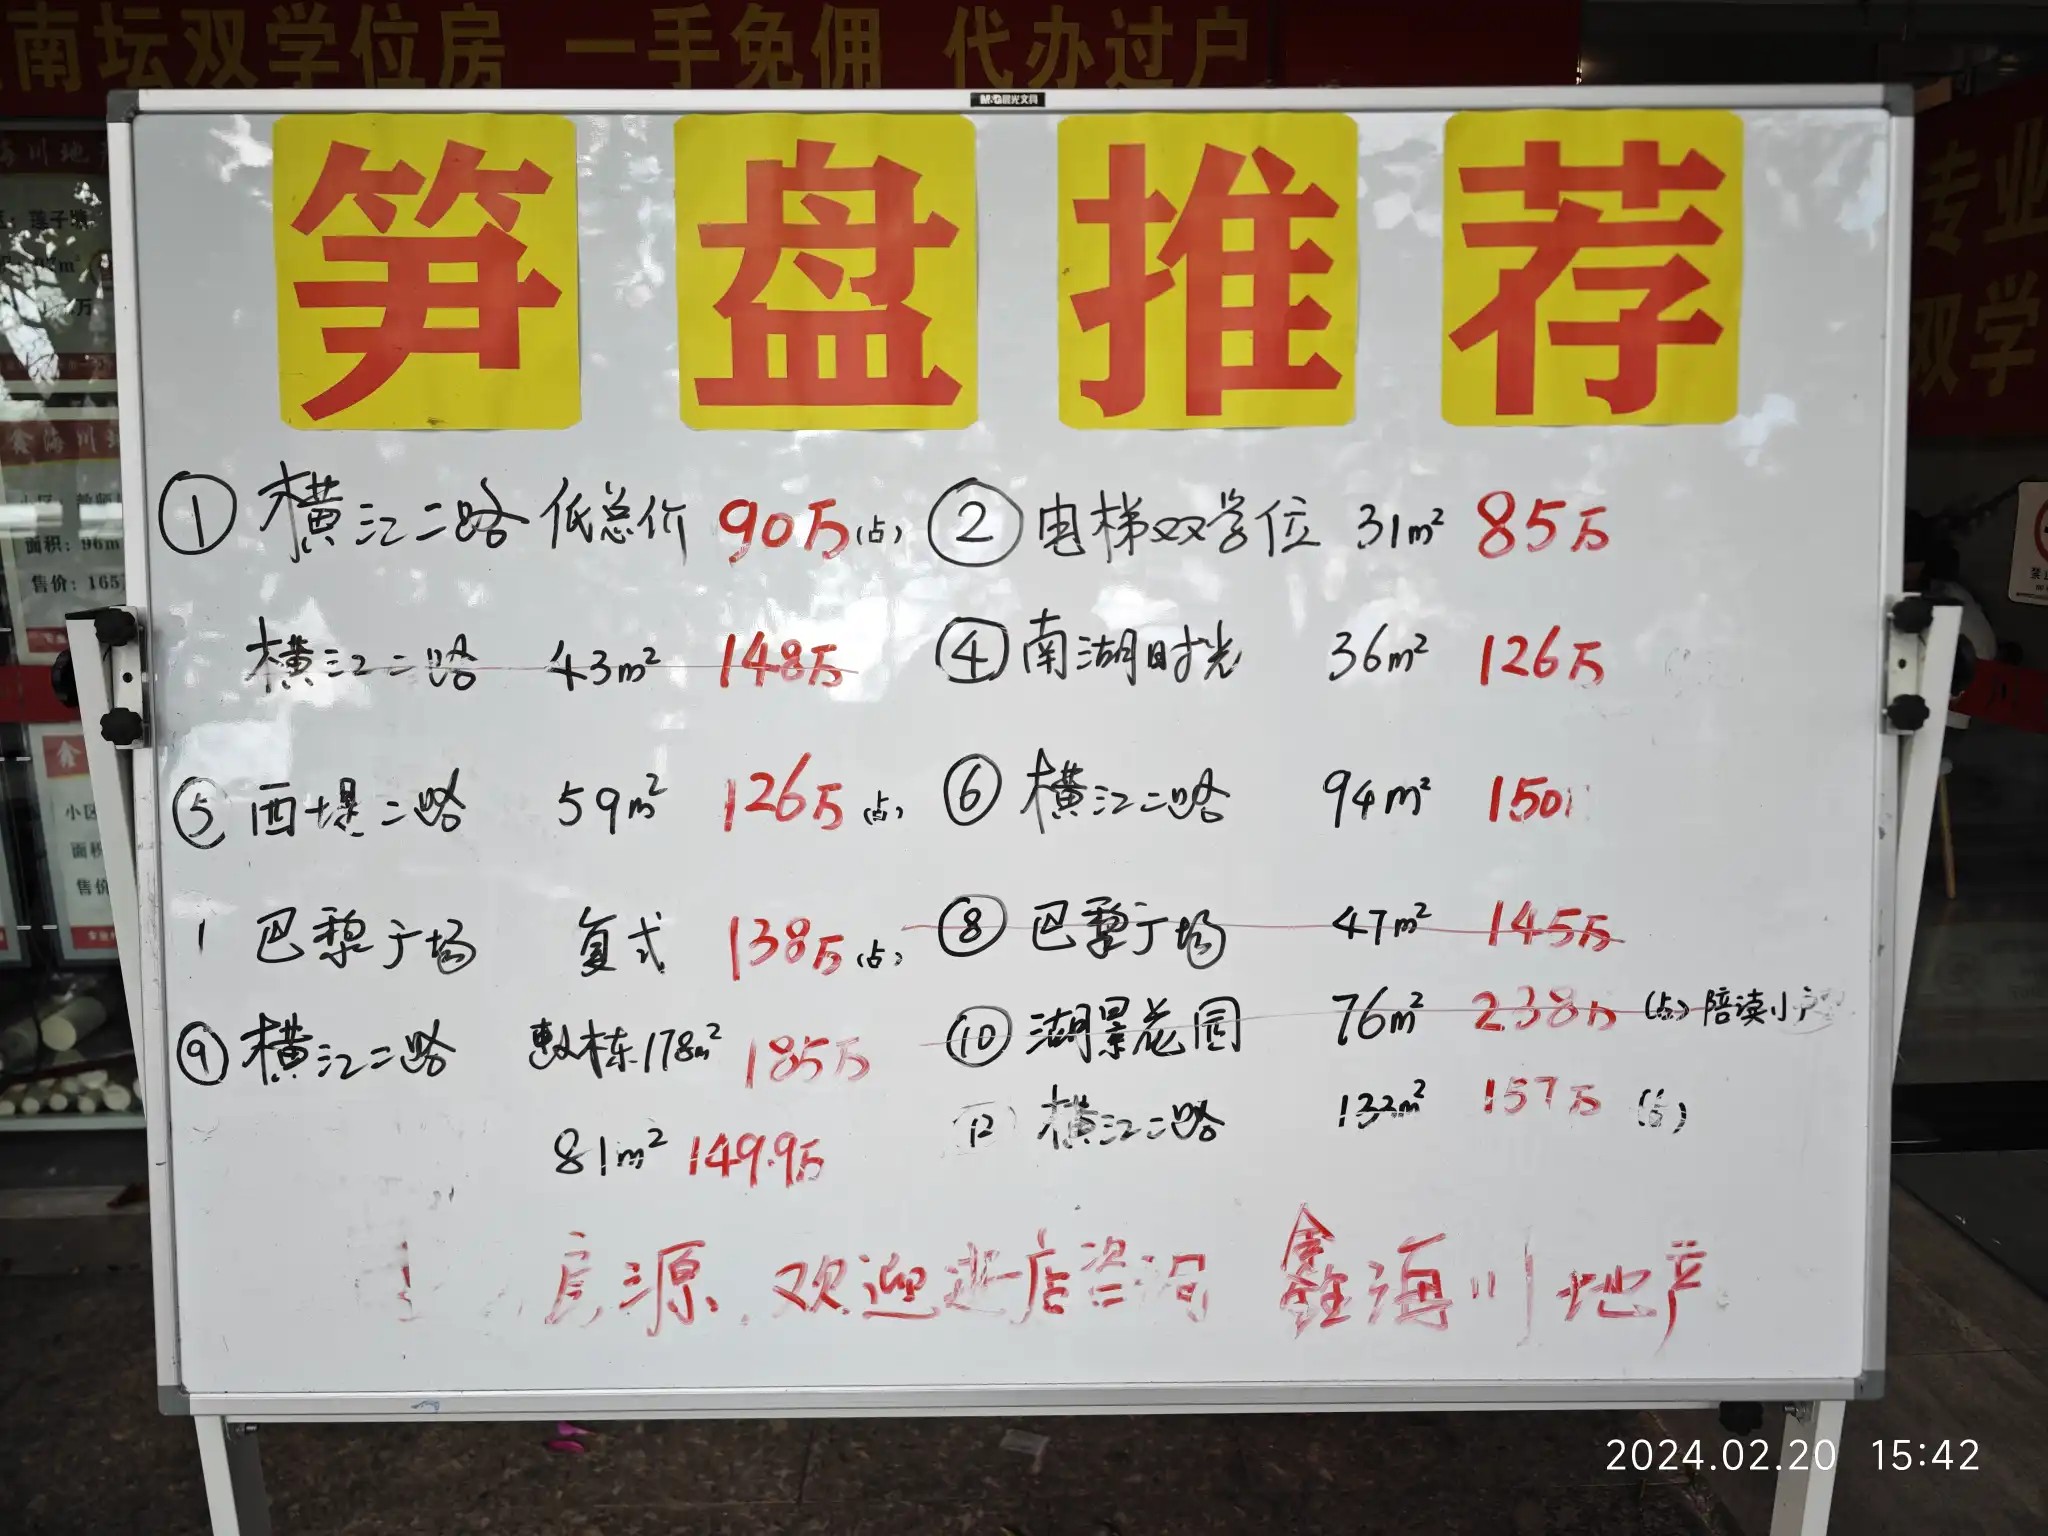 南坛双学位房 一手免佣 代办过户
M&G晨光文具
笋盘推荐
专业
双学
海川地
鑫海川地
面积：96m
售价：165
小区
面积
售价
① 横江二路 低总价 90万(占) ② 电梯双学位 31m² 85万
横江二路 43m² 148万 ④ 南湖时光 36m² 126万
⑤ 西堤二路 59m² 126万(占) ⑥ 横江二路 94m² 150
巴黎广场 复式 138万(占) ⑧ 巴黎广场 47m² 145万
⑨ 横江二路 整栋178m² 185万 ⑩ 湖景花园 76m² 238万 (占) 陪读小户
81m² 149.9万 12 横江二路 132m² 157万 (占)
房源，欢迎进店咨询 鑫海川地产
2024.02.20 15:42